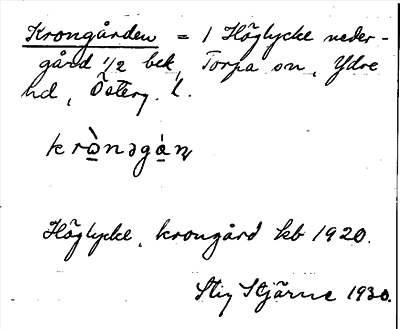 Krongården = 1 Höglycke neder-
gård 1/2 bek, Torpa sn, Ydre
hd, Österg. l.
krὼ̲nəgá̲ɳ
Höglycke, krongård kb 1920.
Stig Stjärne 1930.